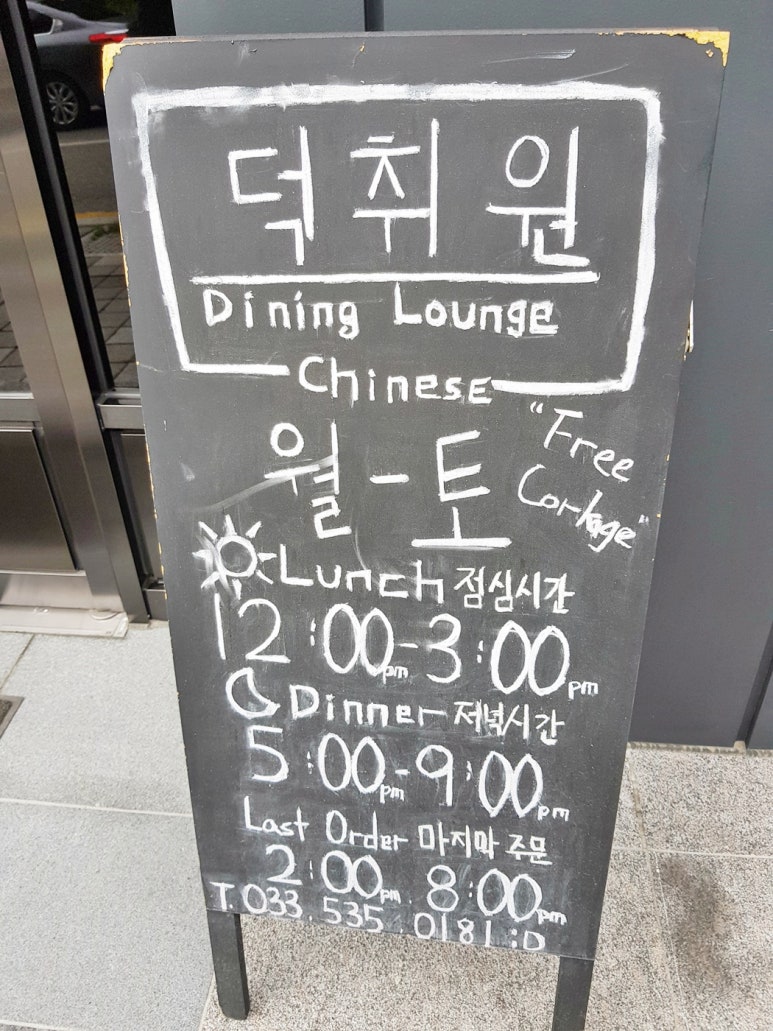 덕취원
Dining Lounge
Chinese
월-토
"Free
Corkage"
Lunch 점심시간
12:00pm-3:00pm
Dinner 저녁시간
5:00pm-9:00pm
Last Order 마지막 주문
2:00pm 8:00pm
T.033.535.0181 :D